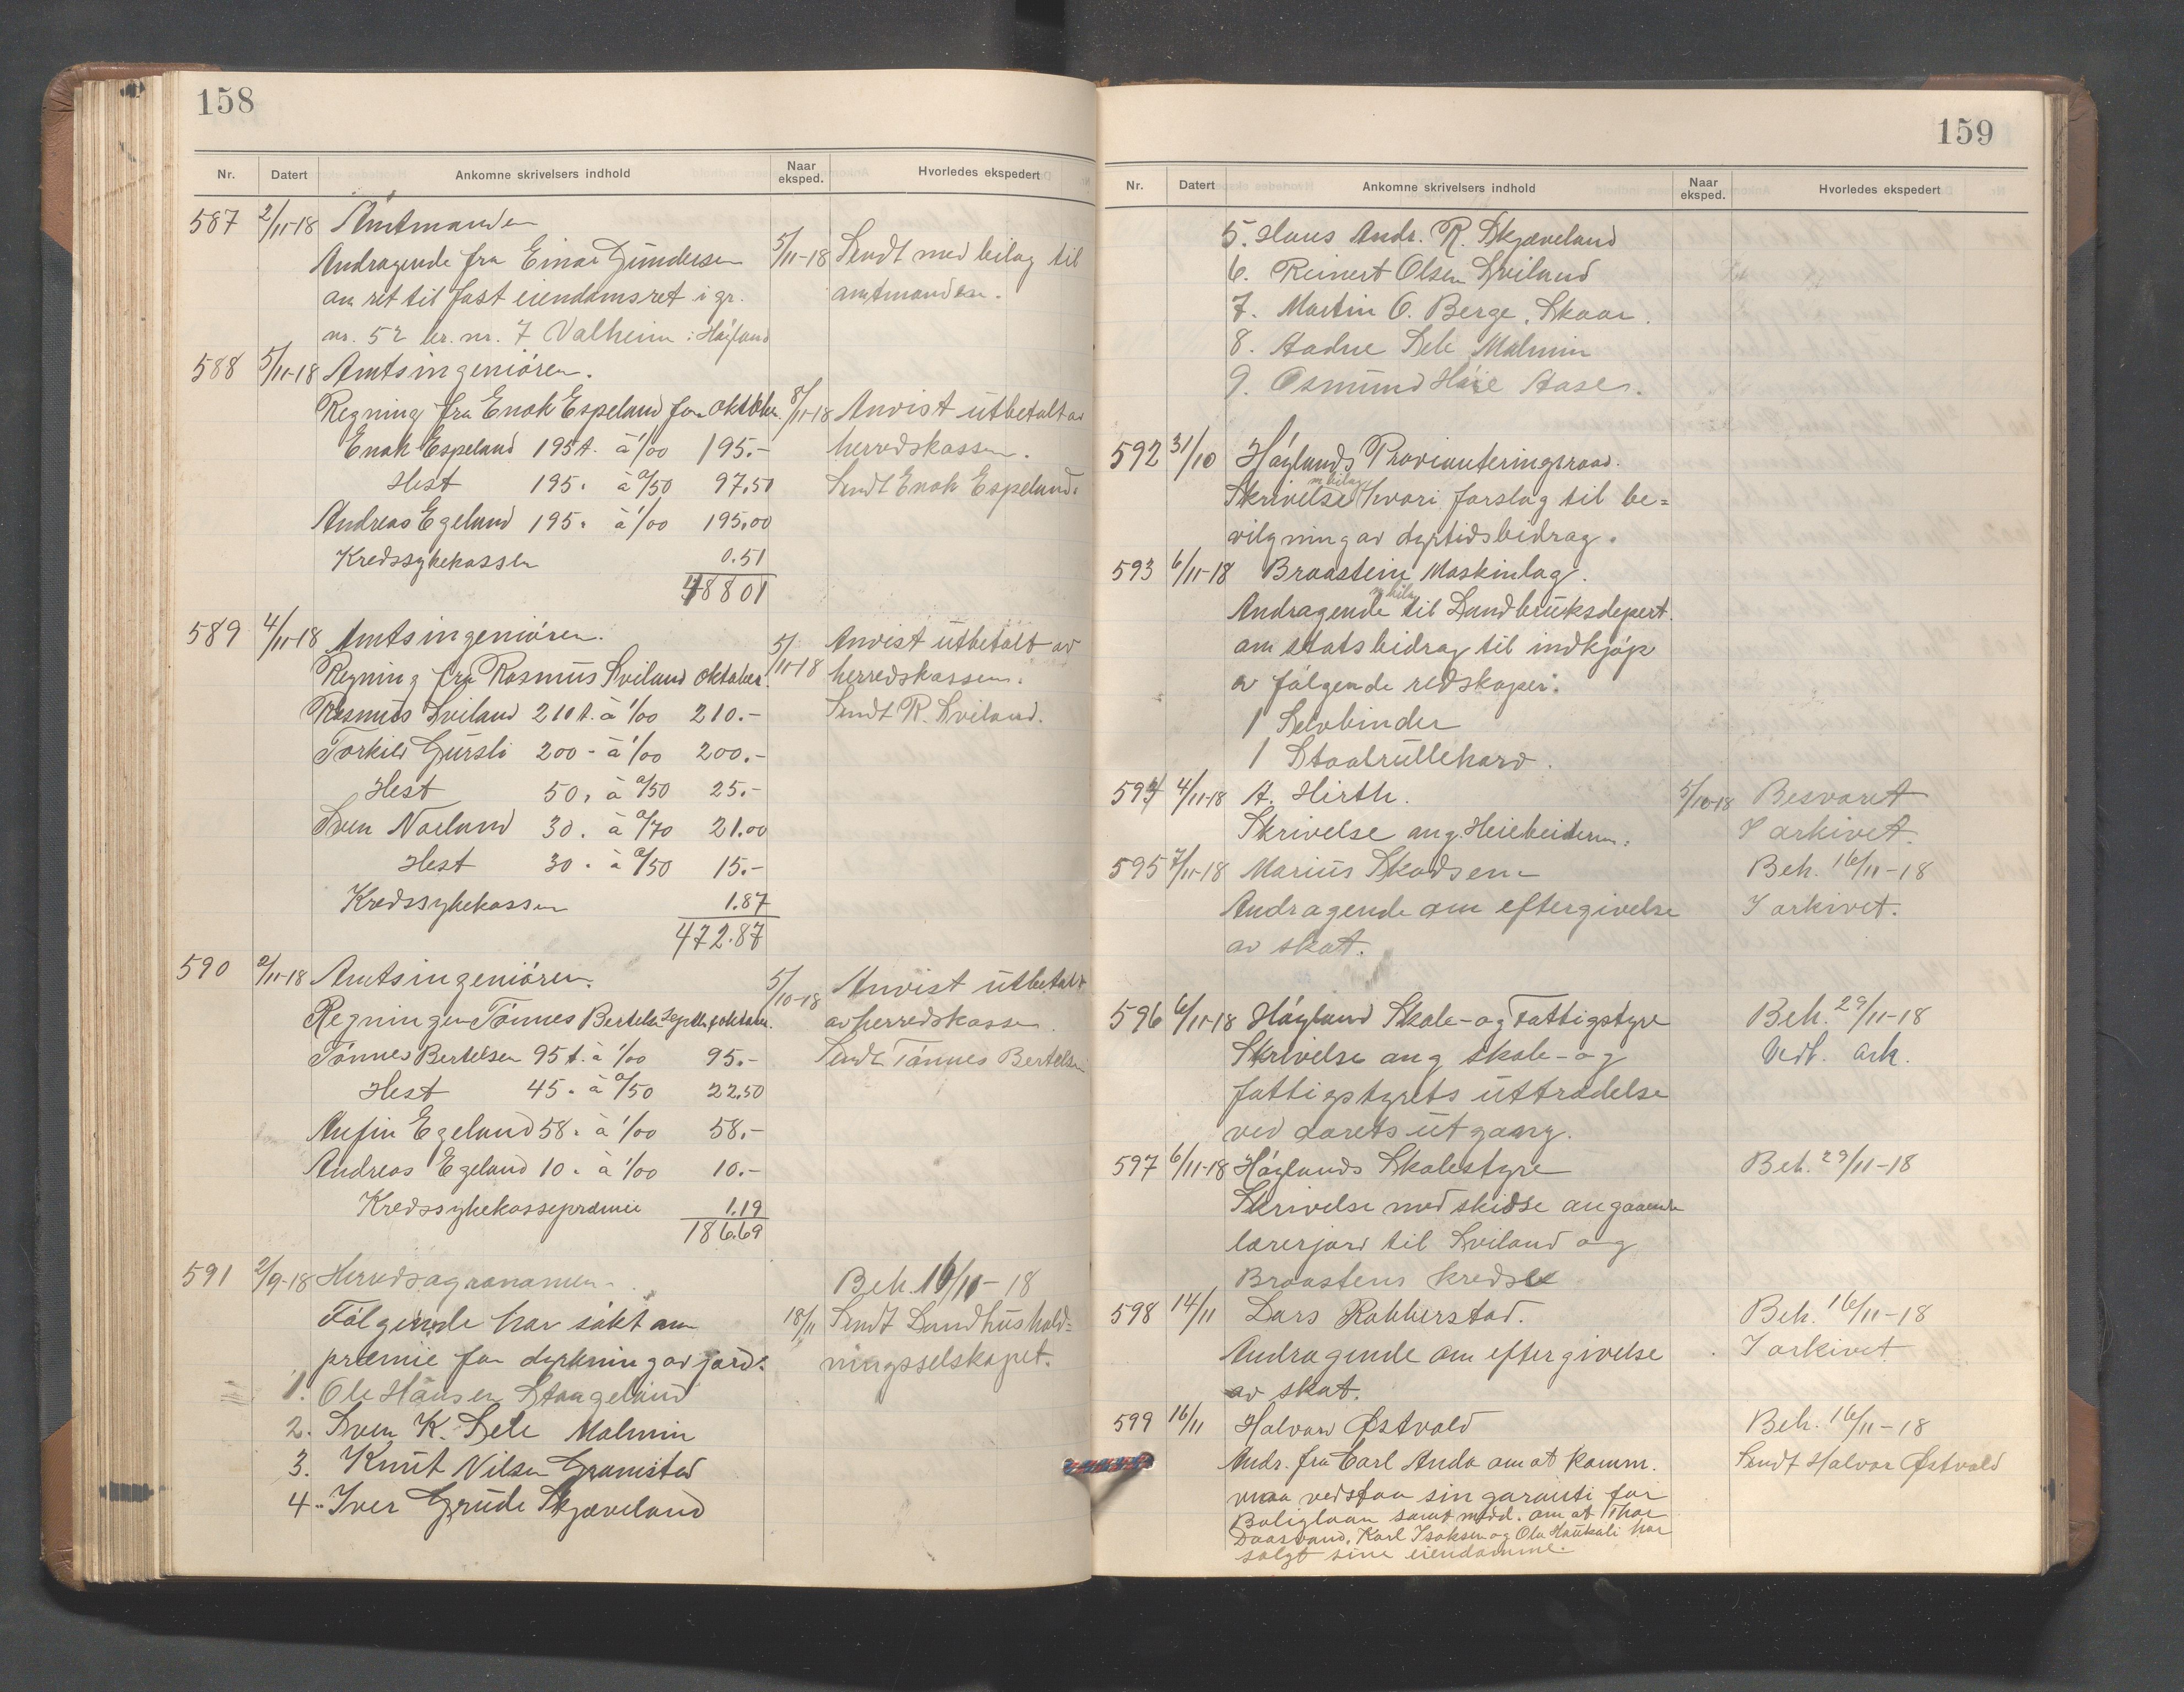 158
Nr. Datert Ankomne skrivelsers indhold Naar eksped. Hvorledes ekspedert
587 2/11-18 Amtmanden
Andragende fra Einar Gundersen 5/11-18 Sendt med bilag til
om ret til fast eiendomsret i gr. amtmanden.
nr. 52 br. nr. 7 Valheim i Høyland
588 5/11-18 Amtsingeniøren.
Regning fra Enok Espeland for oktober. 8/11-18 Anvist utbetalt av
Enok Espeland 195 t. à 1/00 195.- herredskassen.
Hest 195. à 0/50 97.50 Sendt Enok Espeland.
Andreas Egeland 195. à 1/00 195.00
Kredssykekassen 0.51
48801
589 4/11-18 Amtsingeniøren. 5/11-18 Anvist utbetalt av
Regning fra Rasmus Sviland oktober. herredskassen.
Rasmus Sviland 210 t. à 1/00 210.- Sendt R. Sviland.
Torkild Gursli 200 - à 1/00 200.-
Hest 50. à 0/50 25.-
Sven Norland 30. à 0/70 21.00
Hest 30. à 0/50 15.-
Kredssykekassen 1.87
472.87
590 2/11-18 Amtsingeniøren. 5/10-18 Anvist utbetalt
Regningen Tønnes Bertelsen Septbr, oktober. av herredskassen.
Tønnes Bertelsen 95 t. à 1/00 95.- Sendt Tønnes Bertelsen
Hest 45. à 0/50 22.50
Anfin Egeland 58. à 1/00 58.-
Andreas Egeland 10. à 1/00 10.-
Kredssykekassepræmie 1.19
186.69
591 2/9-18 Herredsagronomen. Beh. 16/11-18
Følgende har søkt om 18/11 Sendt Landhushold=
præmie for dyrkning av jord: ningsselskapet.
1. Ole Hansen Stangeland
2. Sven K. Sele Malmin
3. Knut Nilsen Gramstad
4. Iver Grude Skjæveland
159
Nr. Datert Ankomne skrivelsers indhold Naar eksped. Hvorledes ekspedert
5. Hans Andr. R. Skjæveland
6. Reinert Olsen Sviland
7. Martin O. Berge, Skaar.
8. Aadne Sele Malmin
9. Osmund Høie Aase.
592 31/10 Høylands Provianteringsraad.
m bilag
Skrivelse hvori forslag til be=
vilgning av dyrtidsbidrag.
593 6/11-18 Braastein Maskinlag.
m bilag
Andragende til Landbruksdepert.
om statsbidrag til indkjøp
av følgende redskaper:
1 Selvbinder
1 Staalrulleharv.
594 4/11-18 A. Hirth. 5/10-18 Besvaret
Skrivelse ang. Heiebeiderne. I arkivet.
595 7/11-18 Marius Skadsem Beh. 16/11-18
Andragende om eftergivelse I arkivet.
av skat.
596 6/11-18 Høyland Skole- og Fattigstyre Beh. 29/11-18
Skrivelse ang skole- og Vedl. Ark.
fattigstyrets uttrædelse
ved aarets utgang.
597 6/11-18 Høylands Skolestyre Beh. 29/11-18
Skrivelse med skidse angaaende
lærerjord til Sviland og
Braastens kredse
598 14/11 Lars Rabberstad. Beh. 16/11-18
Andragende om eftergivelse I arkivet
av skat.
599 16/11 Halvar Østvold Beh. 16/11-18
Andr. fra Carl Anda om at komm. Sendt Halvar Østvold
maa vedstaa sin garanti for
Boliglaan samt medd. om at Thor
Daasvand, Karl Isaksen og Ola Haukali har
solgt sine eiendomme.